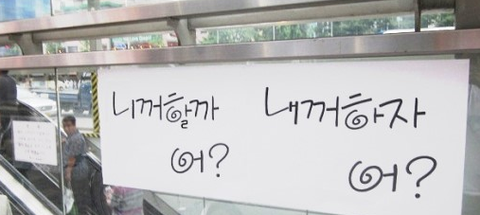 니꺼할까
어?
내꺼하자
어?